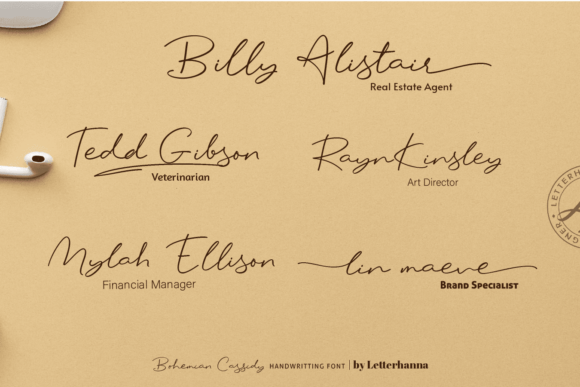 Billy Alistair
Real Estate Agent
Tedd Gibson
Veterinarian
RaynKinsley
Art Director
Mylah Ellison
Financial Manager
lin maeve
BRAND SPECIALIST
Bohemian Cassidy HANDWRITTING FONT | by Letterhanna